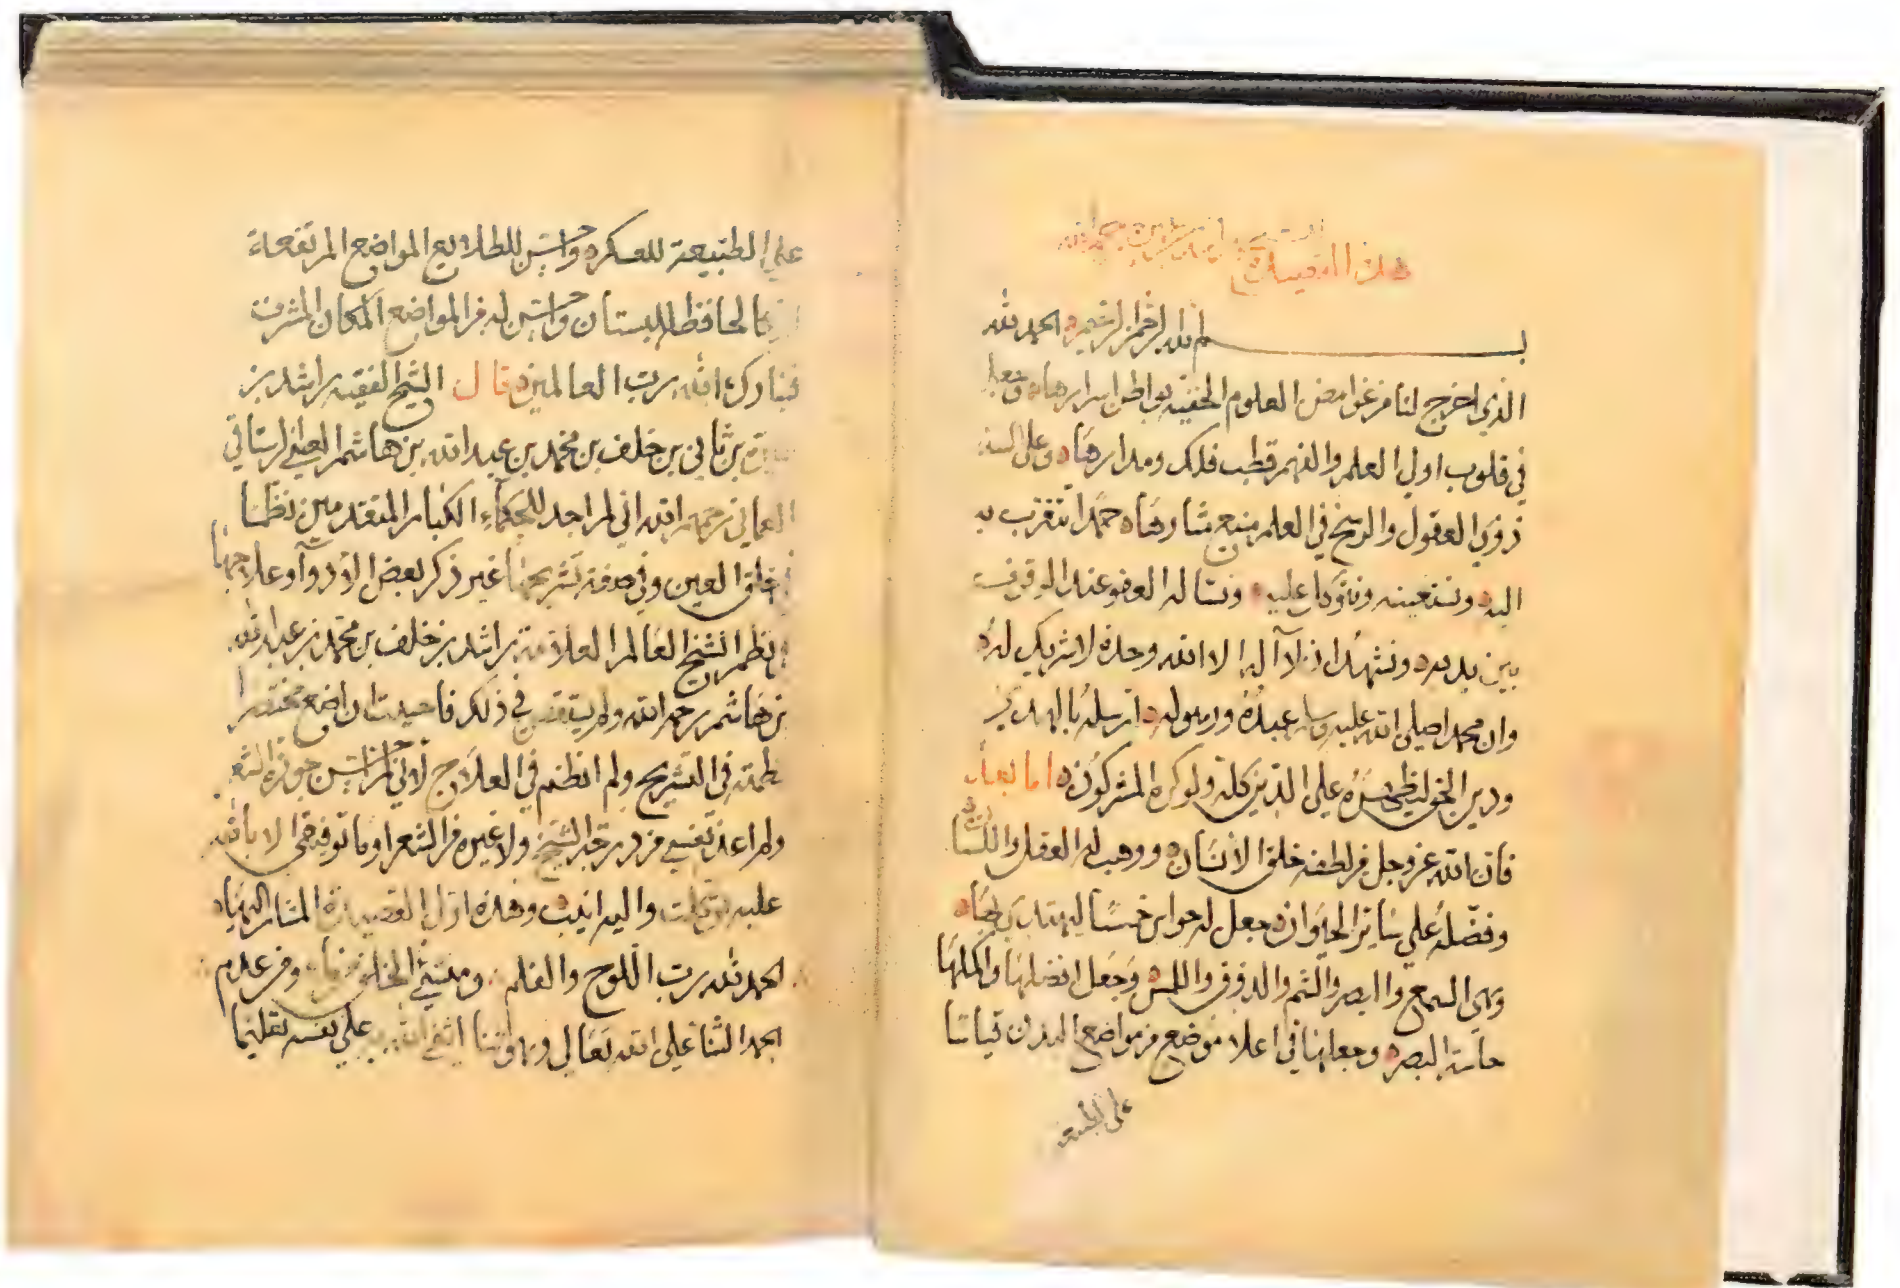 هذه القصيدة
بسم الله الرحمن الرحيم الحمد لله
الذي اخرج لنا من غوامض العلوم الخفية بواطن اسرارها وجعل
في قلوب اولي العلم والفهم قطب فلك ومدارها وعلى السنة
ذوي العقول والرسخ في العلم منبع مثارها حمدا نتقرب به
اليه ونستعينه ونتوكل عليه ونساله العفو عند الوقوف
بين يديه ونشهد ان لا آله الا الله وحده لا شريك له
وان محمدا صلى الله عليه وسلم عبده ورسوله ارسله بالهدى
ودين الحق ليظهره على الدين كله ولو كره المشركون اما بعد
فان الله عز وجل من لطفه خلق الانسان ووهب له العقل واللسان
وفضله على ساير الحيوان وجعل له حواس خمسا ليهتدي بها
وهي السمع والبصر والشم والذوق واللمس وجعل افضلها واكملها
حاسة البصر وجعلها في اعلا موضع من مواضع البدن قياسا
على الطبيعة
على الطبيعة للعسكر واحسن للطلايع المواضع المرتفعاة
الحافظ للبستان واحسن له من المواضع المكان المشرف
فتبارك الله رب العالمين قال الشيخ الفقيه راشد بن
بن ثاني بن خلف بن محمد بن عبد الله بن هاشم العيني الرستاقي
العماني رحمهم الله اني لم اجد للحكماء الكبار المتقدمين نظما
في خلق العين وفي صفة تشريحها غير ذكر بعض الادوآ وعلاجها
نظم الشيخ العالم العلامة راشد بن خلف بن محمد بن عبد الله
بن هاشم رحمه الله ولم يتقص في ذلك فاحببت ان اضع مختصرا
نظمته في التشريح ولم انظم في العلاج لاني
ولم اعد نفسي من درجة الشيخ ولا غيره من الشعرا وما توفيقي الا بالله
عليه توكلت واليه انيب وهذه اول القصيدة المشار اليها
الحمد لله رب اللوح والقلم ومنشئ الخلق من عدم
الحمد الثنا على الله تعالى على نفسه تعليما